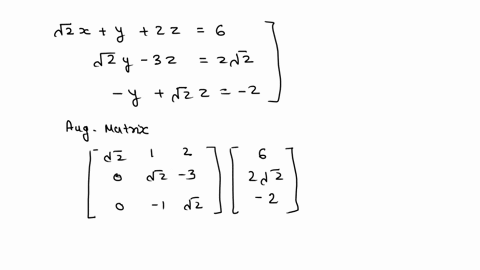 √2x + y + 2z = 6
√2y - 3z = 2√2
-y + √2z = -2
Aug. Matrix
√2 1 2 6
0 √2 -3 2√2
0 -1 √2 -2